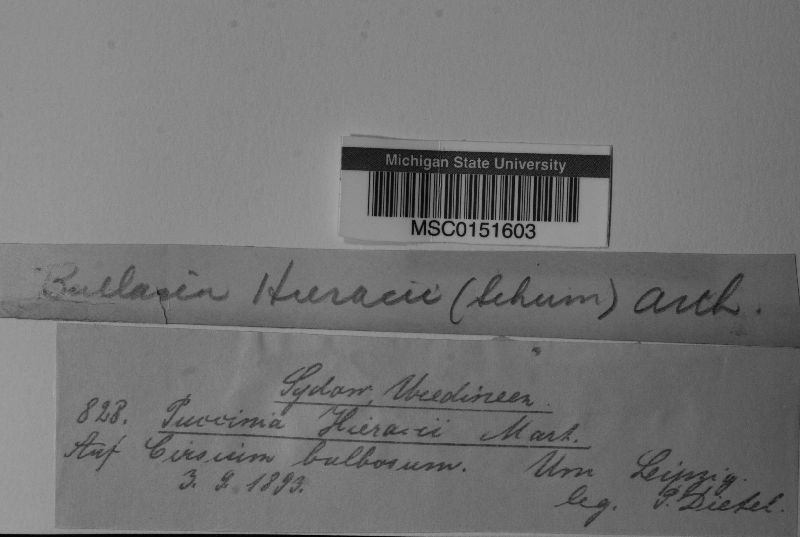 Michigan State University
MSC0151603
Bullaria Hieracii (Schum) Arth.
Sydow, Uredineen.
828. Puccinia Hieracii Mart.
Auf Cirsium bulbosum. Um Leipzig.
3. 9. 1893. leg. P. Dietel.